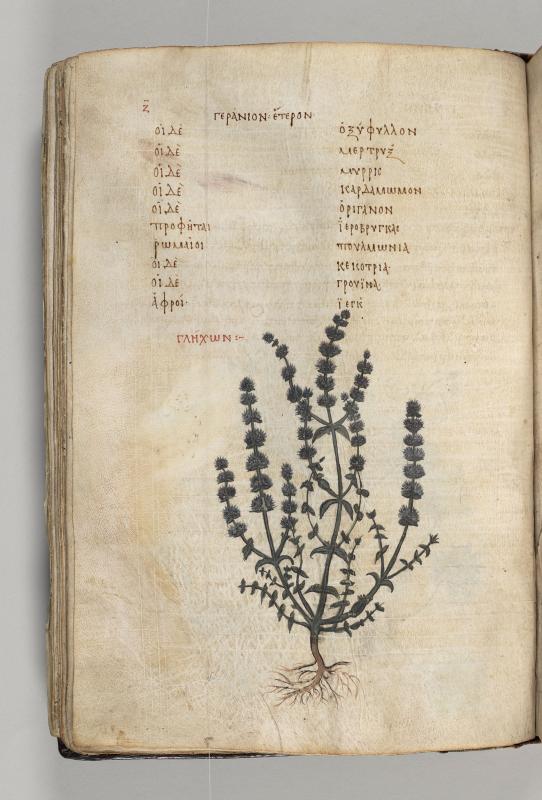 ζ̈
γεράνιον· ἕτερον
οἱ δὲ ὀξύφυλλον
οἱ δὲ μερτρυξ
οἱ δὲ μυρρις
οἱ δὲ καρδάμωμον
οἱ δὲ ὀρίγανον
προφῆται ἱεροβρυγκας
ρωμαῖοι πουλμωνια
οἱ δὲ κεκοτρια·
οἱ δὲ γρουῖνα·
ἄφροι· ἰεγκ
γλήχων :–